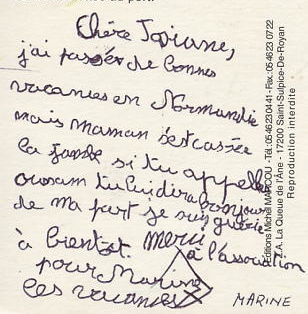 Chère Josiane,
j'ai passer de bonnes
vacances en Normandie
mais maman s'est cassée
la jambe si tu appelle
tu lui dira bonjour
de ma part je suis guérie
à bientôt. Merci
à l'association
pour Marine
les vacances
MARINE
Editions Michel MARCOU - Tél. 0546230441 - Fax: 0546230722
Z.A. La Queue de l'Âne - 17200 Saint-Sulpice-De-Royan
reproduction interdite